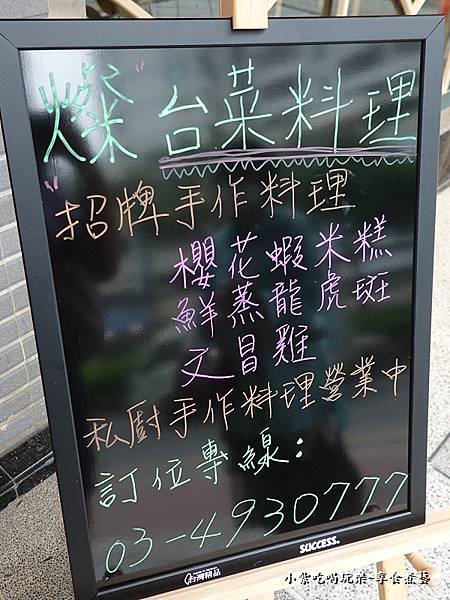 "燦"台菜料理
"招牌手作料理
櫻花蝦米糕
鮮蒸龍虎斑
文昌雞
私廚手作料理營業中
訂位專線:
03-4930777
台灣精品
SUCCESS.
小紫吃喝玩樂-享食在蘆